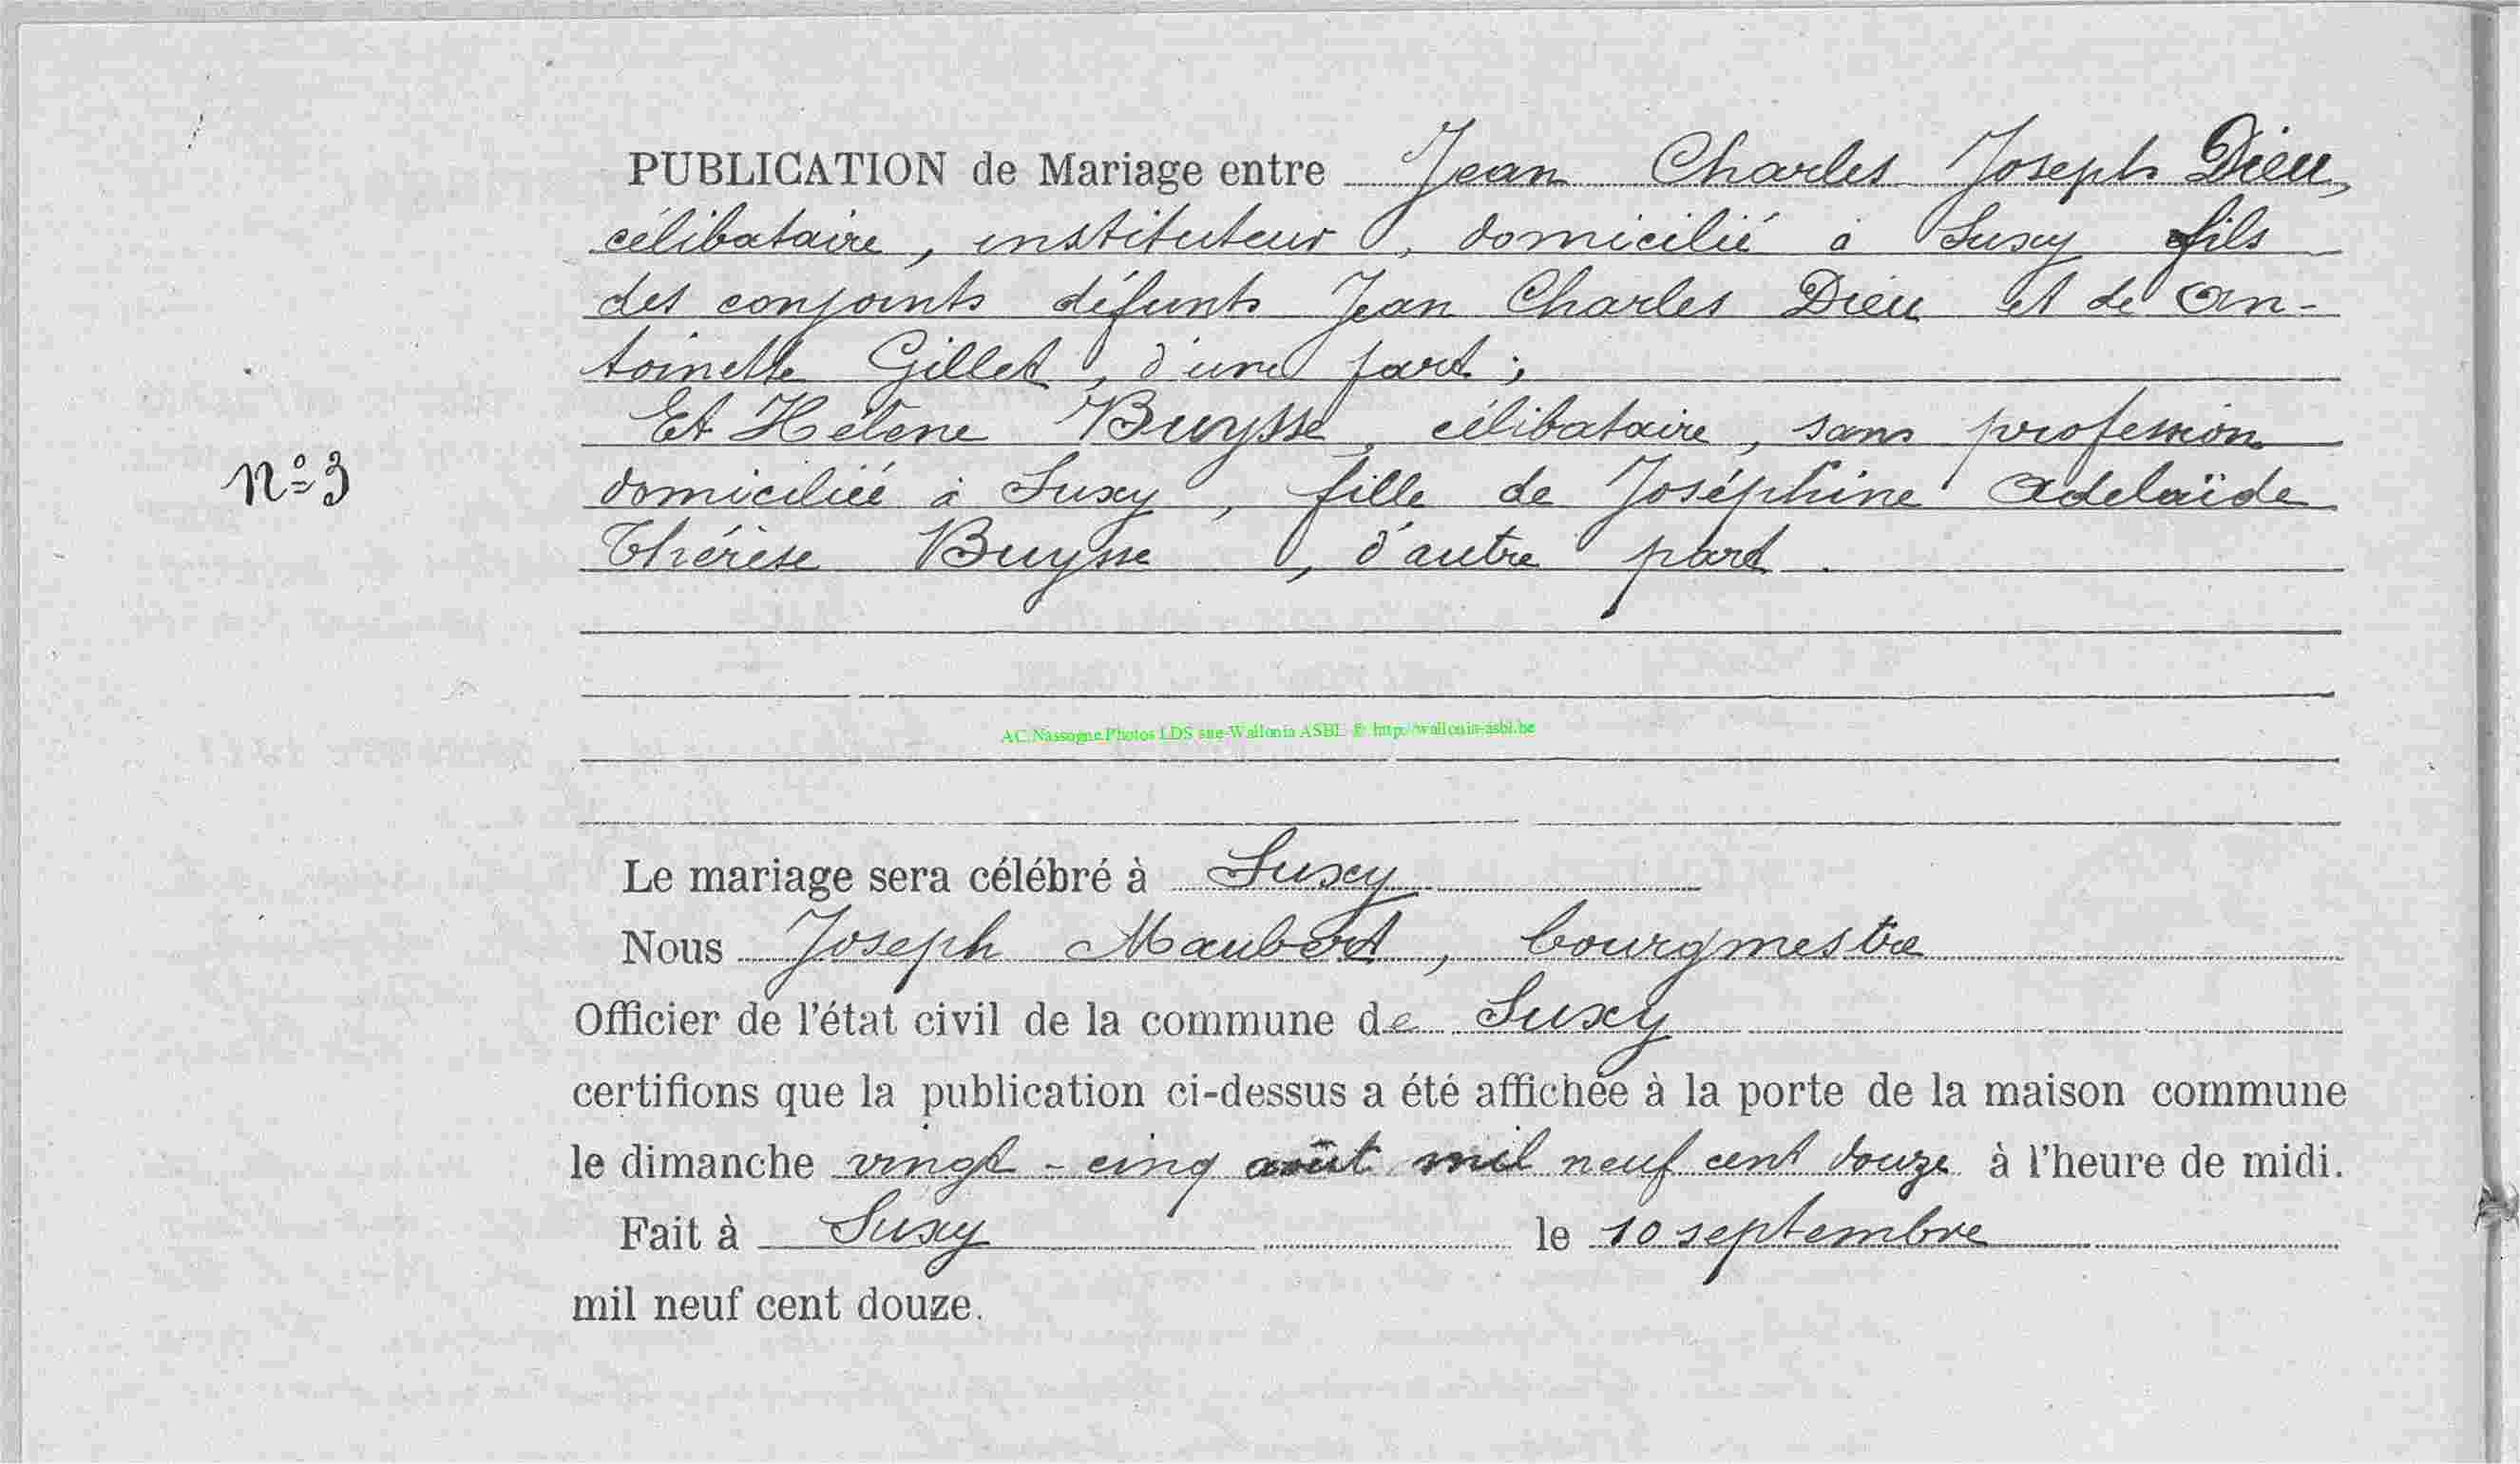 PUBLICATION de Mariage entre Jean Charles Joseph Dieu,
célibataire, instituteur, domicilié à Suxy fils
des conjoints défunts Jean Charles Dieu et de An-
toinette Gillet, d'une part;
Et Hélène Buysse, célibataire, sans profession
N° 3
domiciliée à Suxy, fille de Joséphine Adelaïde
Thérèse Buysse, d'autre part.
AC.Nassogne.Photos LDS sne-Wallonia ASBL © http://wallonia-asbl.be
Le mariage sera célébré à Suxy
Nous Joseph Maubert, bourgmestre
Officier de l'état civil de la commune de Suxy
certifions que la publication ci-dessus a été affichée à la porte de la maison commune
le dimanche vingt-cinq août mil neuf cent douze à l'heure de midi.
Fait à Suxy le 10 septembre
mil neuf cent douze.